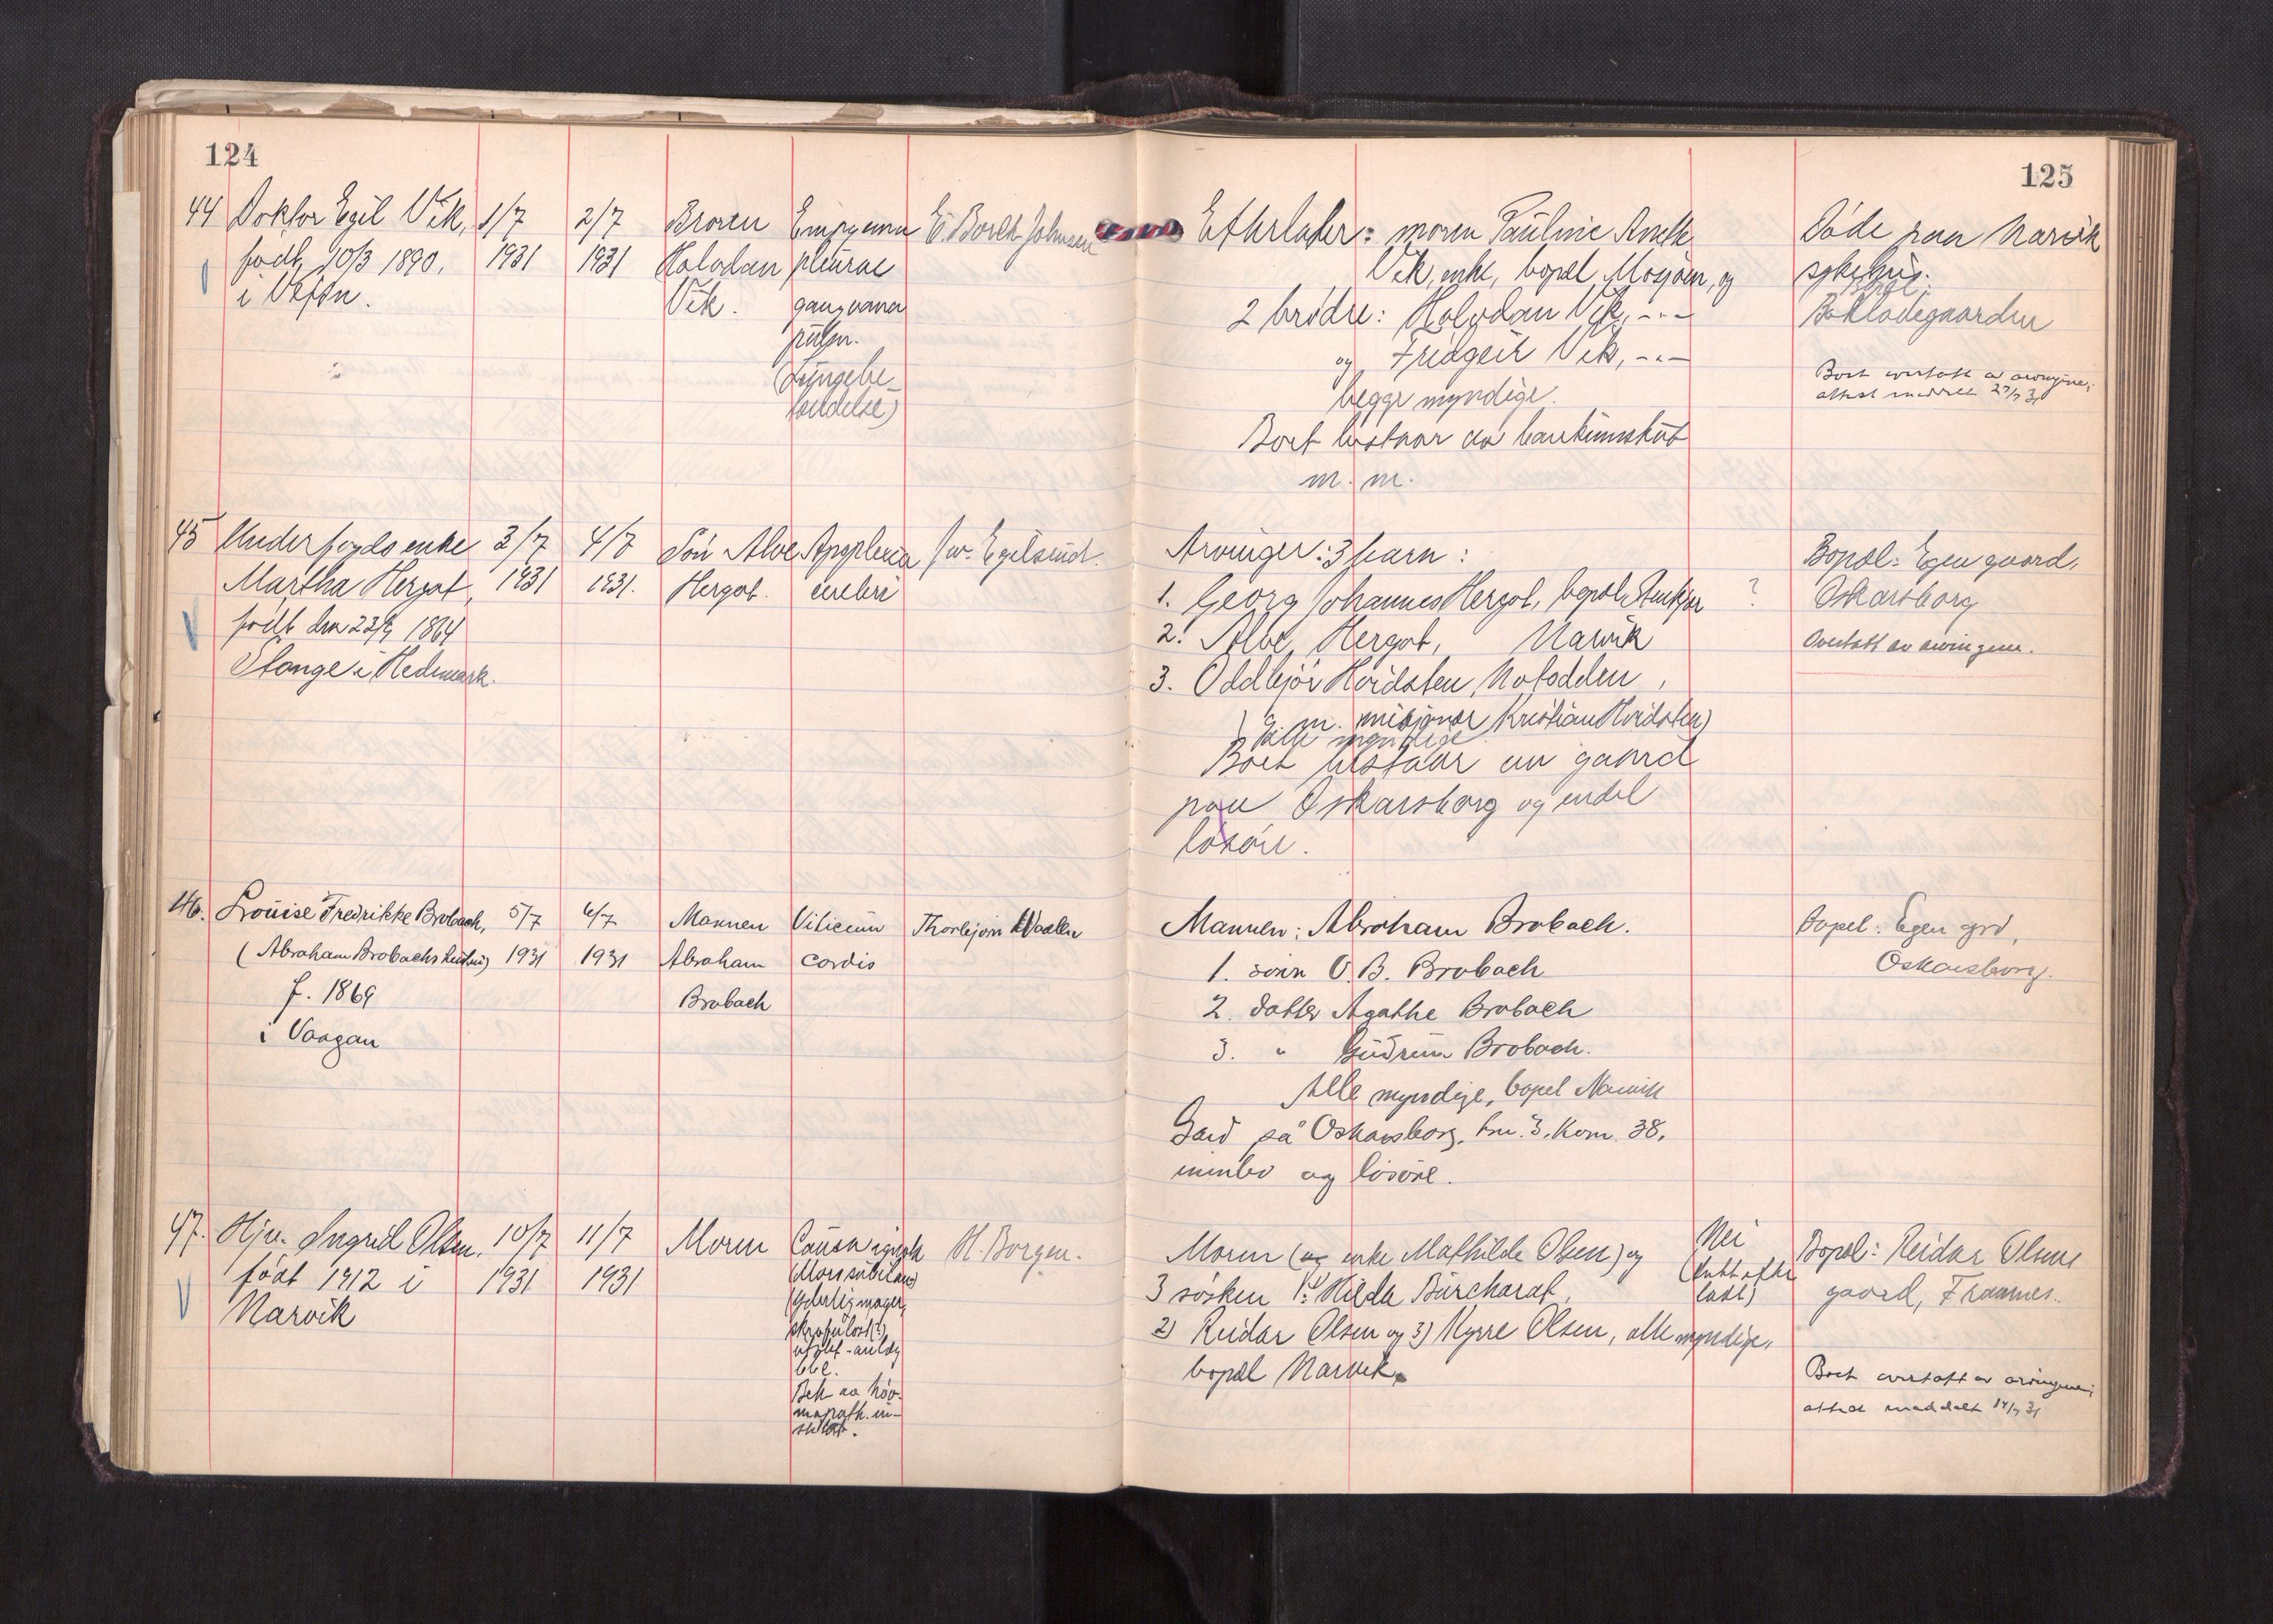 124
44 Doktor Egil Vik,
født 10/3 1890,
i Vefsn.
1/7
1931
2/7
1931
Broren
Halvdan
Vik.
Empyema
pleurae
gangræna
pulm.
(Lungebe-
tændelse)
E. Borch-Johnsen
45 Underfogds enke
Martha Hergot,
født den 23/9 1864
Stange i Hedemark.
3/7
1931
4/7
1931.
Søn Alve
Hergot.
Apoplexia
cerebri
Jw. Egilsrud.
46. Louise Fredrikke Brobach,
(Abraham Brobachs hustru)
f. 1869
i Vaagan
5/7
1931
6/7
1931
Mannen
Abraham
Brobach
Viticum
cordis
Thorbjørn Waaler
47. Hju. Ingrid Olsen,
født 1912 i
Narvik
10/7
1931
11/7
1931
Moren
Causa ignota
(Mors subitanea)
(Yderlig mager,
skrofuløst(?)
Beh av høo-
mopath. in-
stitut.
H. Borgen.
125
Efterlater: moren Pauline
Vik, enke, bopæl Mosjøen, og
2 brødre: Halvdan Vik, -"-
og Fridgeir Vik, -"-
begge myndige.
Boet bestaar av bankinnskud
m. m.
Døde paa Narvik
sykehus.
Bokladegaarden
Boet overtatt av arvingene;
attest meddelt 27/7 31
Arvinger: 3 barn:
1. Georg Johannes Hergot, bopæl Ankjer ?
2. Alve Hergot, Narvik
3. Oddbjør Hvidsten, Notodden,
g. m. misjonær Kristian Hvidsten)
alle myndige
Boet bestaar av gaard
paa Oskarsborg og endel
løsøre.
Bopæl: Egen gaard,
Oskarsborg
Overtatt av arvingene.
Mannen: Abraham Brobach.
1. sønn O. B. Brobach
2. datter Agathe Brobach
3. " Gudrun Brobach.
Alle myndige, bopel Narvik
Gard på Oskarsborg, bnr. 3, Kom. 38,
innbo og løsøre.
Bopel: Egen grd,
Oskarsborg.
Moren (og enke Mathilde Olsen) og
3 søsken 1) Hilda Burchardt,
2) Reidar Olsen og 3) Myrre Olsen, alle myndige,
bopæl Narvik.
Nei
(intet efter-
latt)
Bopæl: Reidar Olsens
gaard, Framnes.
Boet overtatt av arvingene;
attest meddelt 14/7 31